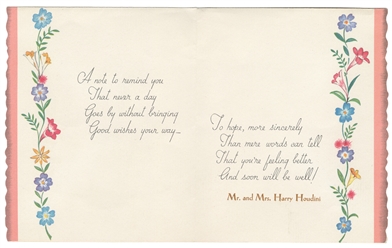 A note to remind you
That never a day
Goes by without bringing
Good wishes your way...
To hope, more sincerely
Than mere words can tell
That you're feeling better
And soon will be well!
Mr. and Mrs. Harry Houdini